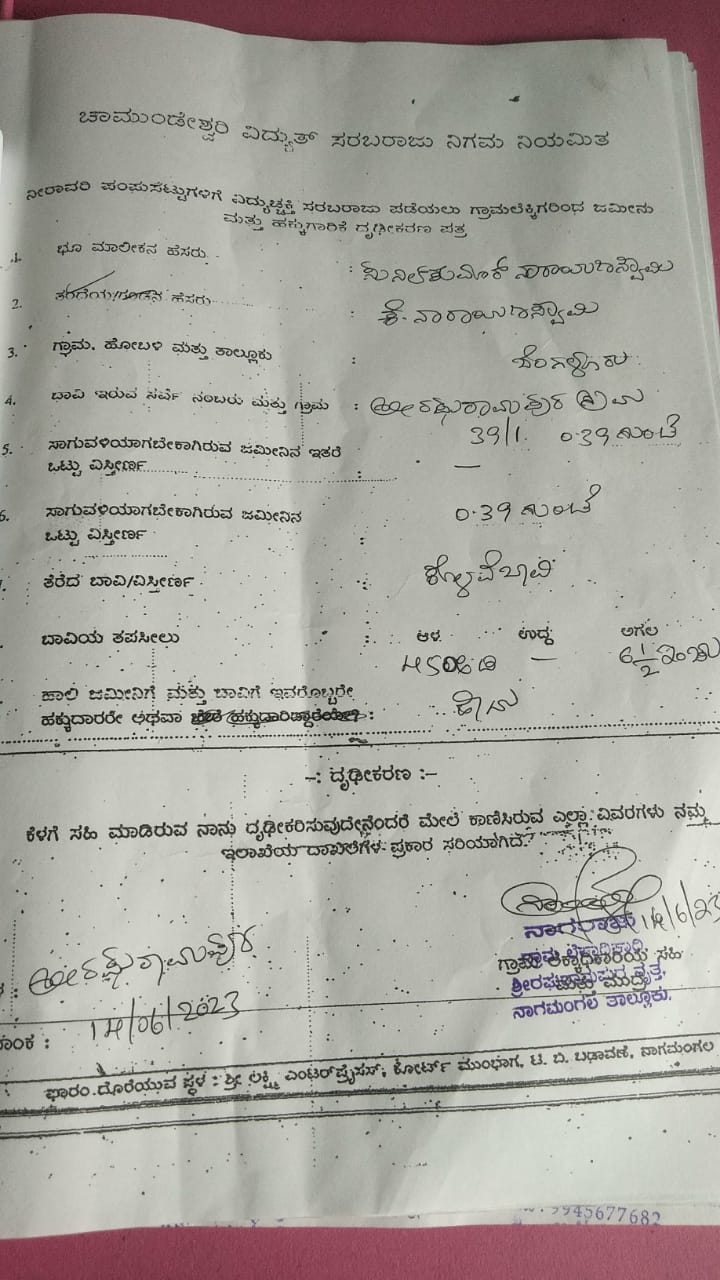 ಚಾಮುಂಡೇಶ್ವರಿ ವಿದ್ಯುತ್ ಸರಬರಾಜು ನಿಗಮ ನಿಯಮಿತ
ನೀರಾವರಿ ಪಂಪುಸೆಟ್ಟುಗಳಿಗೆ ವಿದ್ಯುಚ್ಛಕ್ತಿ ಸರಬರಾಜು ಪಡೆಯಲು ಗ್ರಾಮಲೆಕ್ಕಿಗರಿಂದ ಜಮೀನು
ಮತ್ತು ಹಕ್ಕುಗಾರಿಕೆ ದೃಢೀಕರಣ ಪತ್ರ
1. ಭೂ ಮಾಲೀಕನ ಹೆಸರು :
2. ತಂದೆಯ/ಗಂಡನ ಹೆಸರು : ಕೆ. ನಾರಾಯಣಸ್ವಾಮಿ
3. ಗ್ರಾಮ, ಹೋಬಳಿ ಮತ್ತು ತಾಲ್ಲೂಕು :
4. ಬಾವಿ ಇರುವ ಸರ್ವೆ ನಂಬರು ಮತ್ತು ಗ್ರಾಮ :
39/1. 0.39 ಗುಂಟೆ
5. ಸಾಗುವಳಿಯಾಗಬೇಕಾಗಿರುವ ಜಮೀನಿನ ಇತರೆ
ಒಟ್ಟು ವಿಸ್ತೀರ್ಣ : —
6. ಸಾಗುವಳಿಯಾಗಬೇಕಾಗಿರುವ ಜಮೀನಿನ 0.39 ಗುಂಟೆ
ಒಟ್ಟು ವಿಸ್ತೀರ್ಣ
ತೆರೆದ ಬಾವಿ/ವಿಸ್ತೀರ್ಣ : ಕೊಳವೆಬಾವಿ
ಬಾವಿಯ ತಪಸೀಲು : ಆಳ ಉದ್ದ ಅಗಲ
450 ಅಡಿ — 6 1/2 ಇಂಚು
ಹಾಲಿ ಜಮೀನಿಗೆ ಮತ್ತು ಬಾವಿಗೆ ಇವರೊಬ್ಬರೇ ಹೌದು
ಹಕ್ಕುದಾರರೇ ಅಥವಾ ಬೇರೆ ಹಕ್ಕುದಾರಿದ್ದಾರೆಯೇ :
-: ದೃಢೀಕರಣ :-
ಕೆಳಗೆ ಸಹಿ ಮಾಡಿರುವ ನಾನು ದೃಢೀಕರಿಸುವುದೇನೆಂದರೆ ಮೇಲೆ ಕಾಣಿಸಿರುವ ಎಲ್ಲಾ ವಿವರಗಳು ನಮ್ಮ
ಇಲಾಖೆಯ ದಾಖಲೆಗಳ ಪ್ರಕಾರ ಸರಿಯಾಗಿದೆ.
14/6/23
ನಾಗರಾಜು
ಗ್ರಾಮ ಲೆಕ್ಕಾಧಿಕಾರಿಯ ಸಹಿ
ಮತ್ತು ಮುದ್ರೆ
ನಾಗಮಂಗಲ ತಾಲ್ಲೂಕು.
ಾಂಕ : 14/06/2023
ಫಾರಂ ದೊರೆಯುವ ಸ್ಥಳ : ಶ್ರೀ ಲಕ್ಷ್ಮಿ ಎಂಟರ್‌ಪ್ರೈಸಸ್, ಕೋರ್ಟ್ ಮುಂಭಾಗ, ಟಿ. ಬಿ. ಬಡಾವಣೆ, ನಾಗಮಂಗಲ
9945677682